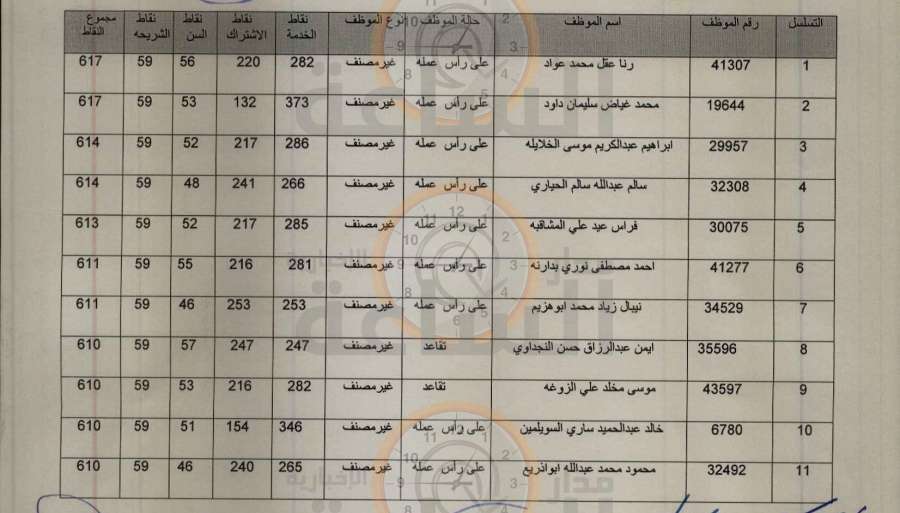 التسلسل رقم الموظف اسم الموظف حالة الموظف نوع الموظف نقاط الخدمة نقاط الاشتراك نقاط السن نقاط الشريحه مجموع النقاط
1 41307 رنا عقل محمد عواد على رأس عمله غيرمصنف 282 220 56 59 617
2 19644 محمد غياض سليمان داود على رأس عمله غيرمصنف 373 132 53 59 617
3 29957 ابراهيم عبدالكريم موسى الخلايله على رأس عمله غيرمصنف 286 217 52 59 614
4 32308 سالم عبدالله سالم الحياري على رأس عمله غيرمصنف 266 241 48 59 614
5 30075 فراس عيد علي المشاقبه على رأس عمله غيرمصنف 285 217 52 59 613
6 41277 احمد مصطفى نوري بدارنه على رأس عمله غيرمصنف 281 216 55 59 611
7 34529 نيبال زياد محمد ابوهزيم على رأس عمله غيرمصنف 253 253 46 59 611
8 35596 ايمن عبدالرزاق حسن النجداوي تقاعد غيرمصنف 247 247 57 59 610
9 43597 موسى مخلد علي الزوغه تقاعد غيرمصنف 282 216 53 59 610
10 6780 خالد عبدالحميد ساري السويلمين على رأس عمله غيرمصنف 346 154 51 59 610
11 32492 محمود محمد عبدالله ابوذريع على رأس عمله غيرمصنف 265 240 46 59 610
مدار
الساعة
الإخبارية